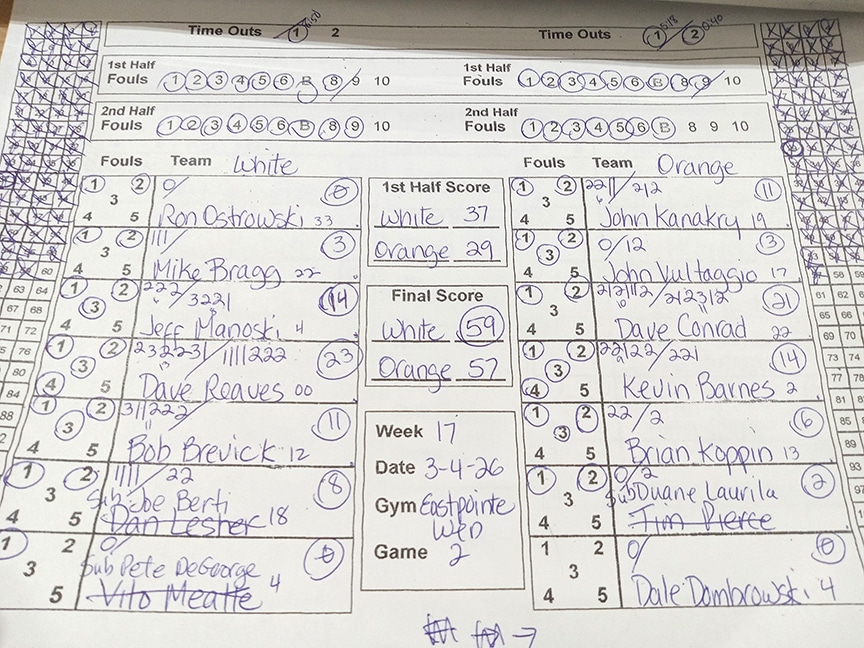 Time Outs 1 2
Time Outs 1 2
1st Half
Fouls 1 2 3 4 5 6 B 8 9 10
1st Half
Fouls 1 2 3 4 5 6 B 8 9 10
2nd Half
Fouls 1 2 3 4 5 6 B 8 9 10
2nd Half
Fouls 1 2 3 4 5 6 B 8 9 10
Fouls Team White
1 2 3 4 5
0/ 0
Ron Ostrowski 33
1 2 3 4 5
111/ 3
Mike Bragg 22
1 2 3 4 5
222/3221 14
Jeff Manoski 4
1 2 3 4 5
232231/1111222 23
Dave Reaves 00
1 2 3 4 5
311222/ 11
Bob Brevick 12
1 2 3 4 5
1111/22 8
Sub Joe Berti
Dan Lesher 18
1 2 3 5
0/ 0
Sub Pete DeGeorge
Vito Meatte 4
1st Half Score
White 37
Orange 29
Final Score
White 59
Orange 57
Week 17
Date 3-4-26
Gym Eastpointe
Wed
Game 2
Fouls Team Orange
1 2 3 4 5
2211/212 11
John Kanakry 19
1 2 3 4 5
0/12 3
John Vultaggio 17
1 2 3 4 5
21
Dave Conrad 22
1 2 3 4 5
22122/221 14
Kevin Barnes 2
1 2 3 4 5
22/2 6
Brian Koppin 13
1 2 3 4 5
0/2 2
Sub Duane Laurila
Tim Pierce
1 2 3 4 5
0/ 0
Dale Dombrowski 4